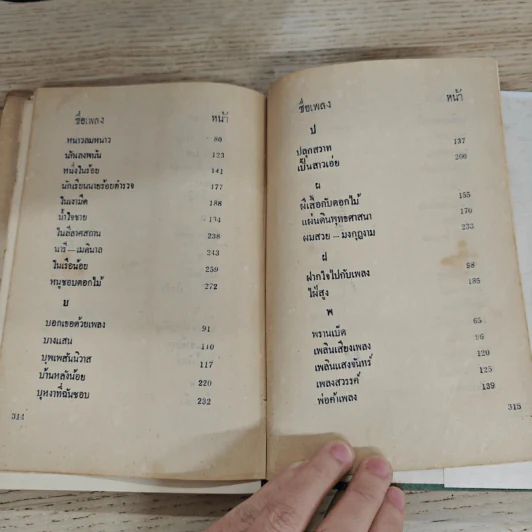 ชื่อเพลง หน้า
หนาวลมหนาว 80
หนึ่งในร้อย 141
นักเรียนนายร้อยตำรวจ 177
ในเงามืด 188
น้ำใจชาย 194
ในลีลาศสถาน 238
นารี — เมดินาล 243
ในเรือน้อย 259
หนูชอบดอกไม้ 272
บ
บอกเธอด้วยเพลง 91
บางแสน 110
บุพเพสันนิวาส 117
บ้านหลังน้อย 220
บุหงาที่ฉันชอบ 232
314
ชื่อเพลง หน้า
ป
ปลุกสวาท 137
เป็นสาวเอ่ย 200
ผ
ผีเสื้อกับดอกไม้ 155
แผ่นดินพุทธศาสนา 170
ผมสวย — มงกุฎงาม 233
ฝ
ฝากใจไปกับเพลง 98
ใฝ่สูง 185
พ
พรานเบ็ด 65
เพลินเสียงเพลง 96
เพลินแสงจันทร์ 120
เพลงสวรรค์ 125
พ่อค้าเพลง 139
315